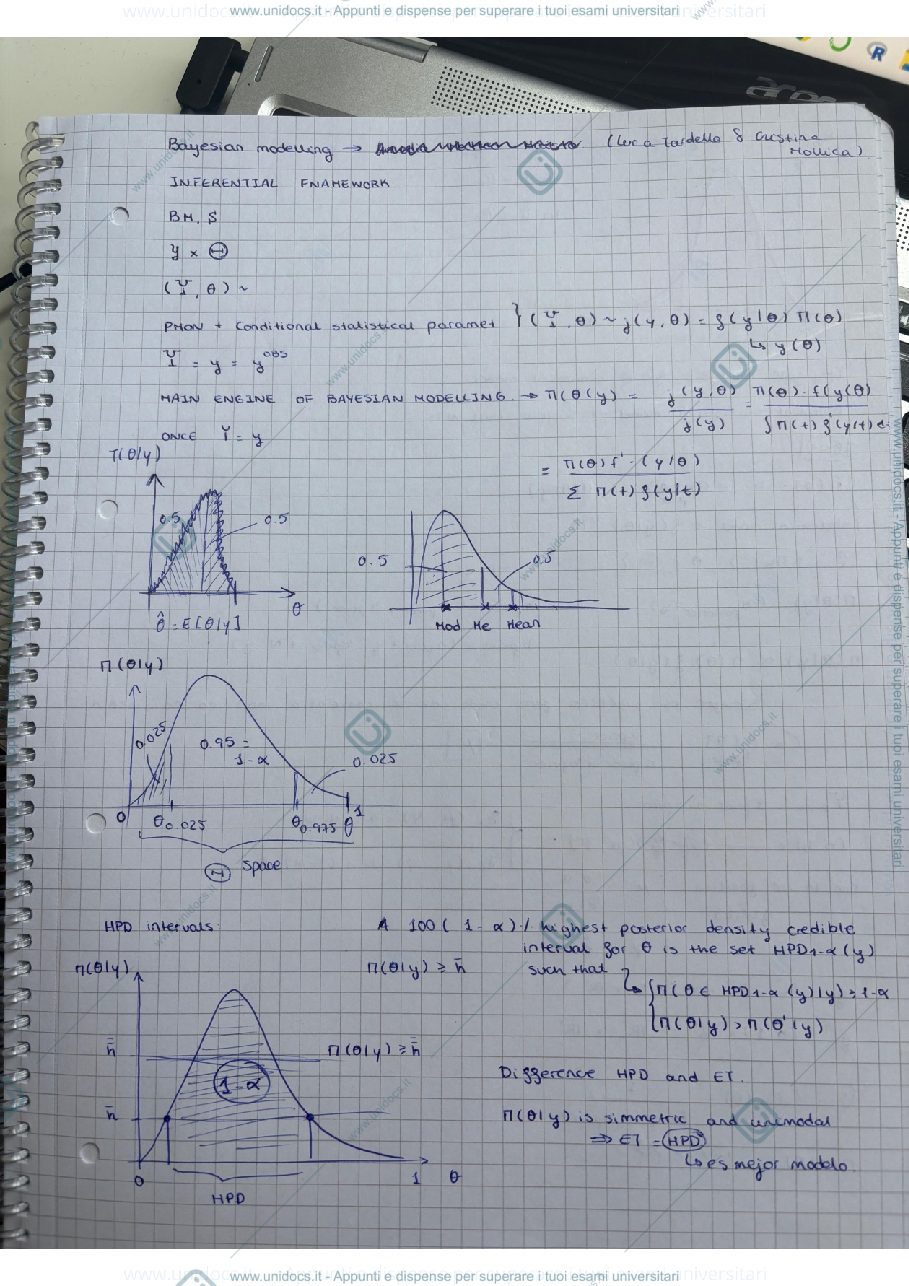 www.unidocs.it - Appunti e dispense per superare i tuoi esami universitari
acer
R
Bayesian modelling → (Luca Tardella & Cristina
Mollica)
INFERENTIAL FRAMEWORK
BM, S
Y × Θ
(Y, θ) ~
PRIOR + Conditional statistical paramet } (Y, θ) ~ j(y, θ) = f(y|θ) π(θ)
↳ y(θ)
Y = y = y^obs
MAIN ENGINE OF BAYESIAN MODELLING → π(θ|y) = j(y,θ) / j(y) = π(θ)·f(y|θ) / ∫π(t) f(y|t) d
ONCE Y = y
= π(θ) f · (y|θ) / Σ π(t) f(y|t)
π(θ|y)
0.5
0.5
θ
θ̂ = E[θ|y]
0.5
0.5
Mod Me Mean
π(θ|y)
0.025
0.95 =
1-α
0.025
0 θ0.025 θ0.975 θ 1
Θ space
HPD intervals
A 100(1-α)·/ highest posterior density credible
interval for θ is the set HPD1-α(y)
such that
π(θ|y) ≥ h̄
{π(θ ∈ HPD1-α(y)|y) = 1-α
π(θ|y) > π(θ'|y)
π(θ|y)
h̿
π(θ|y) ≥ h̿
1-α
h̄
0 1 θ
HPD
Difference HPD and ET.
π(θ|y) is simmetric and unimodal
⇒ ET = HPD
↳ es mejor modelo.
www.unidocs.it - Appunti e dispense per superare i tuoi esami universitari
www.unidocs.it - Appunti e dispense per superare i tuoi esami universitari